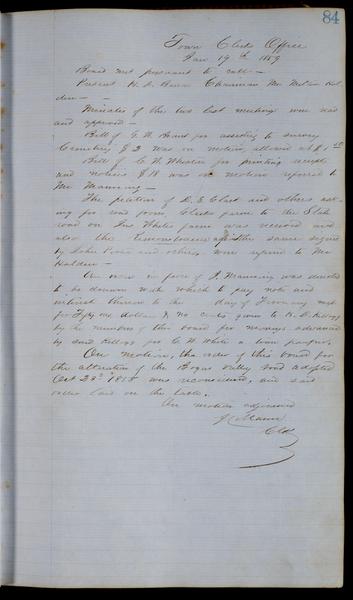 84
Town Clerks Office
Jan 19th 1859
Board met pursuant to call —
Present H. A. Chairman Mr.
den —
Minutes of the two last meetings were read
and approved —
Bill of G. W. for assisting to survey
Cemetery $2 was on motion allowed at $1
Bill of C. W. for printing
and notices $18 was on motion referred to
Mr. Manning —
The petition of D. E. Clark and others ask
ing for road from Clarks farm to the State
road on farm was received and
also the remonstrance against the same signed
by John and others, were referred to Mr
Holden —
An order in favor of J. Manning was directed
to be drawn with which to pay note and
interest thereon to the day of February next
for fifty one dollars & no cents given to H. D. Kellogg
by the members of this board for moneys advanced
by said Kellogg for C. H. White a town pauper.
On motion, the order of this board for
the alteration of the Bogus Valley road adopted
Oct 23d 1858 was reconsidered, and said
order laid on the table.
On motion adjourned
J. C.
Clk